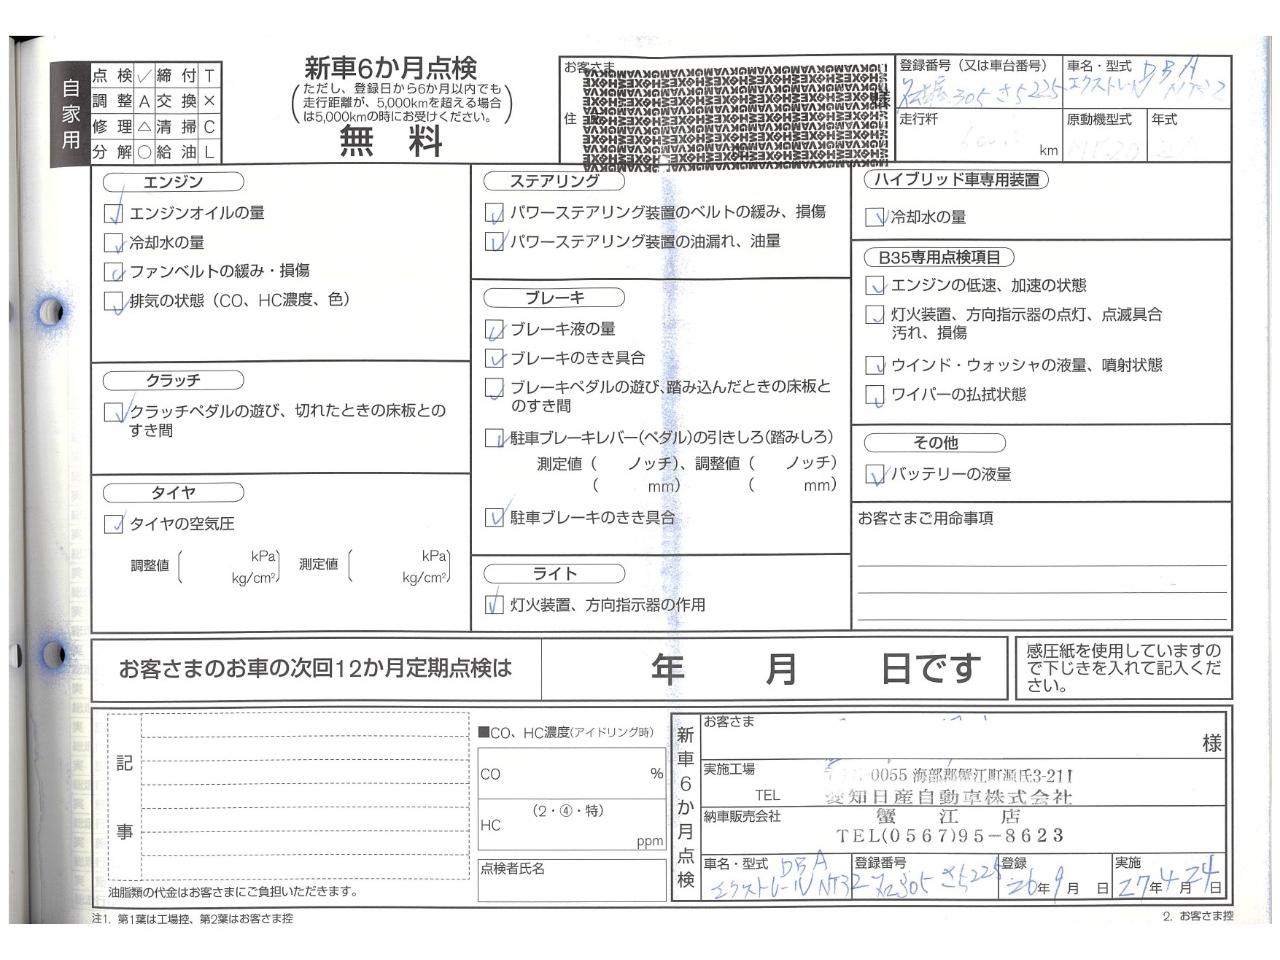 自家用
点検 ✓ 締付 T
調整 A 交換 ×
修理 △ 清掃 C
分解 ○ 給油 L
新車6か月点検
(ただし、登録日から6か月以内でも
走行距離が、5,000kmを超える場合
は5,000kmの時にお受けください。)
無料
お客さま
様
住
登録番号(又は車台番号)
名古屋305 さ5225
車名・型式 DBA
エクストレイル NT32
走行粁
km
原動機型式
年式
エンジン
エンジンオイルの量
冷却水の量
ファンベルトの緩み・損傷
排気の状態(CO、HC濃度、色)
クラッチ
クラッチペダルの遊び、切れたときの床板との
すき間
タイヤ
タイヤの空気圧
調整値 ( kPa kg/cm²) 測定値 ( kPa kg/cm²)
ステアリング
パワーステアリング装置のベルトの緩み、損傷
パワーステアリング装置の油漏れ、油量
ブレーキ
ブレーキ液の量
ブレーキのきき具合
ブレーキペダルの遊び、踏み込んだときの床板と
のすき間
駐車ブレーキレバー(ペダル)の引きしろ(踏みしろ)
測定値 ( ノッチ)、調整値 ( ノッチ)
( mm) ( mm)
駐車ブレーキのきき具合
ライト
灯火装置、方向指示器の作用
ハイブリッド車専用装置
冷却水の量
B35専用点検項目
エンジンの低速、加速の状態
灯火装置、方向指示器の点灯、点滅具合
汚れ、損傷
ウインド・ウォッシャの液量、噴射状態
ワイパーの払拭状態
その他
バッテリーの液量
お客さまご用命事項
お客さまのお車の次回12か月定期点検は 年 月 日です
感圧紙を使用していますの
で下じきを入れて記入くだ
さい。
記事
油脂類の代金はお客さまにご負担いただきます。
■CO、HC濃度(アイドリング時)
CO %
(2・④・特)
HC ppm
点検者氏名
新車6か月点検
お客さま
様
実施工場
TEL
-0055 海部郡蟹江町源氏3-211
愛知日産自動車株式会社
納車販売会社
蟹江店
TEL(0567)95-8623
車名・型式 DBA
エクストレイル NT32
登録番号
名古屋305 さ5225
登録
26年9月 日
実施
27年4月24日
注1. 第1葉は工場控、第2葉はお客さま控
2. お客さま控